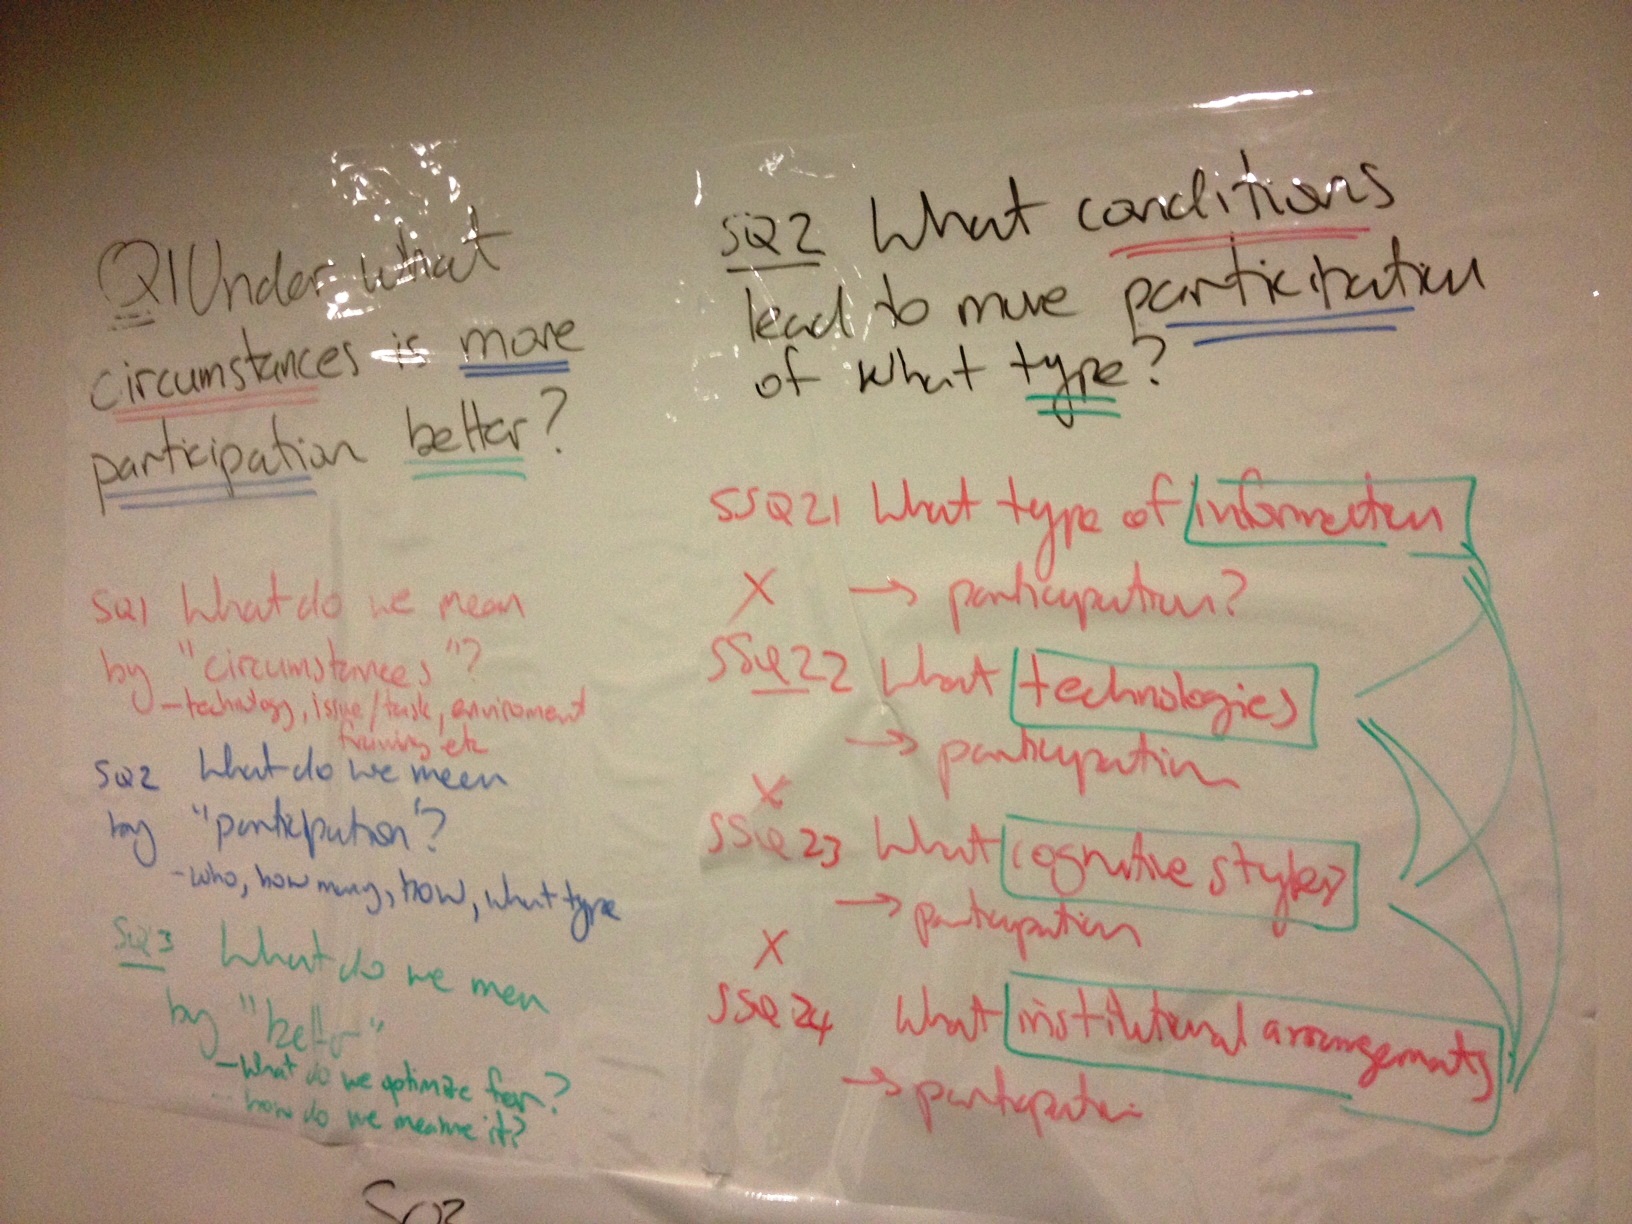 Q1 Under what
circumstances is more
participation better?
SQ1 What do we mean
by "circumstances"?
- technology, issue/task, enviroment
training, etc
SQ2 What do we meen
by "participation"?
- who, how many, how, what type
SQ3 What do we mean
by "better"
- What do we optimize for?
- how do we measure it?
SQ2
SQ2 What conditions
lead to more participation
of what type?
SSQ21 What type of information
X → participation?
SSQ22 What technologies
→ participation
X
SSQ23 What cognitive styles
→ participation
X
SSQ24 What institutional arrangements
→ participation